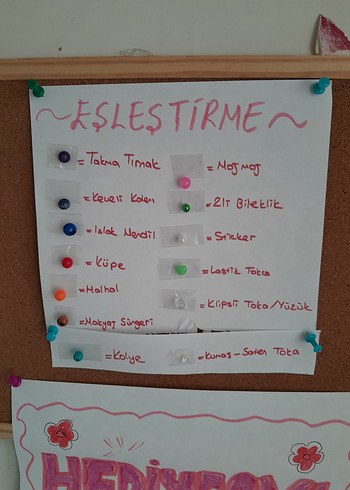 ~EŞLEŞTİRME~
= Takma Tırnak
= Keçeli Kalem
= Islak Mendil
= Küpe
= Halhal
= Makyaj Süngeri
= Kolye
= Moşmoş
= 2li Bileklik
= Sticker
= Lastik Toka
= Klipsli Toka/Yüzük
= Kumaş-Saten Toka